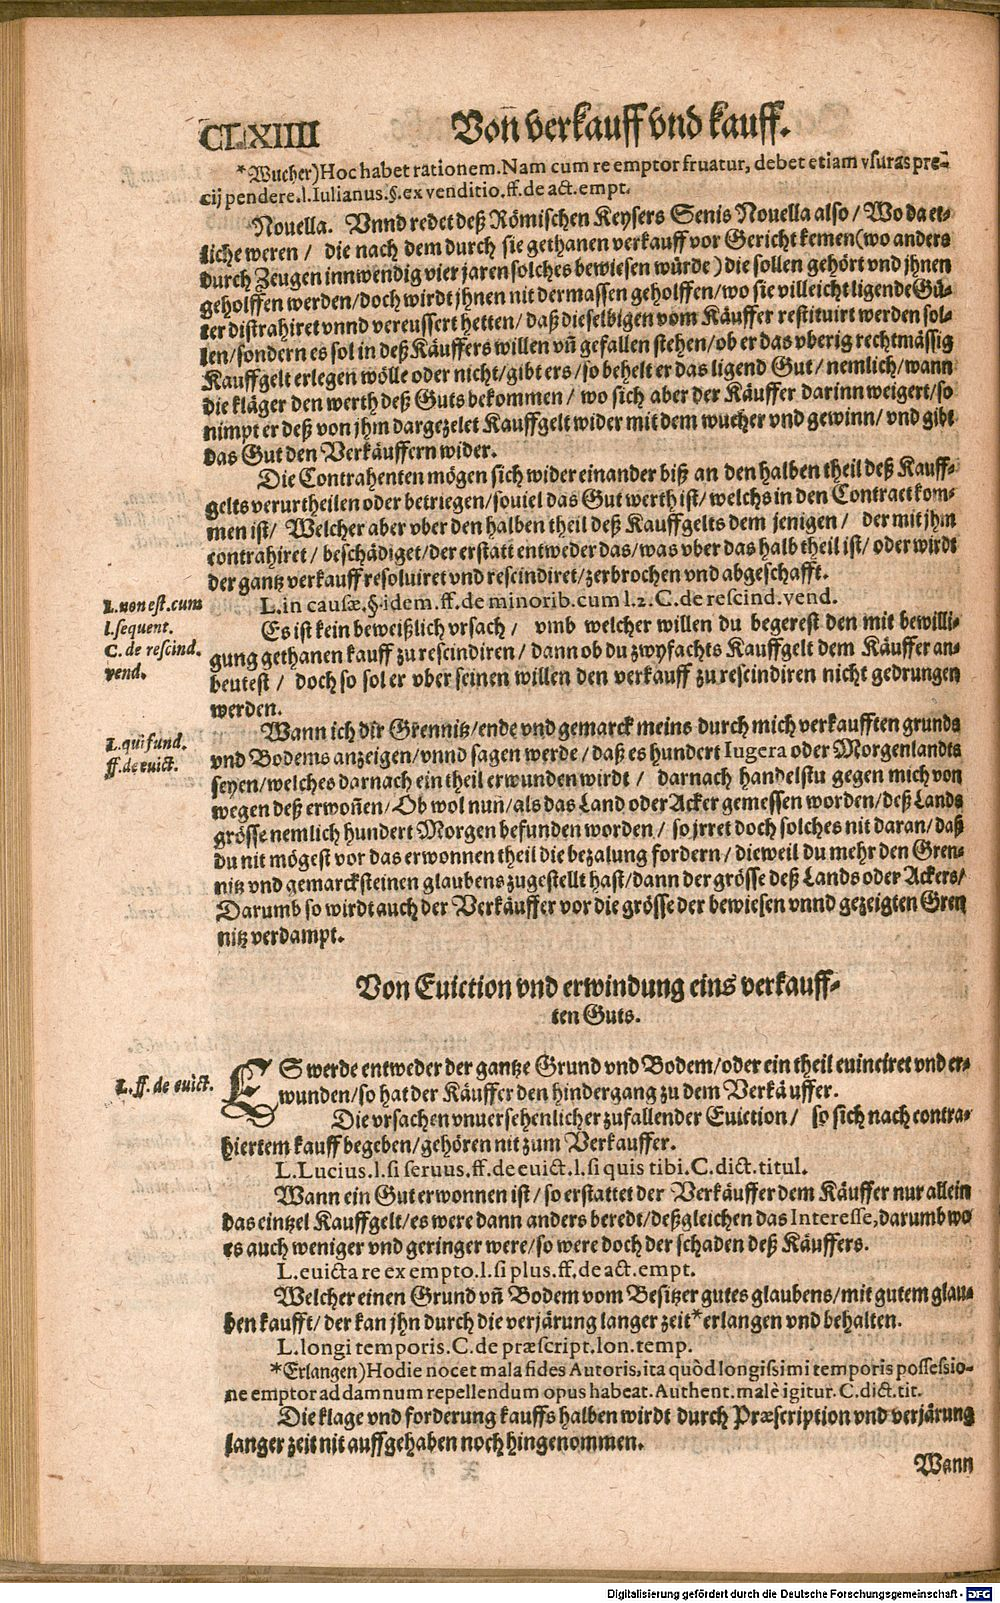 CLXIIII Von̄ verkauff vnd kauff.
*Wucher) Hoc habet rationem. Nam cum re emptor fruatur, debet etiam vsuras pre-
cij pendere. l. Iulianus. §. ex venditio. ff. de act. empt.
Nouella. Vnnd redet deß Römischen Keysers Senis Nouella also / Wo da et-
liche weren / die nach dem durch sie gethanen verkauff vor Gericht kemen (wo anders
durch Zeugen innwendig vier jaren solches bewiesen würde) die sollen gehört vnd jhnen
geholffen werden / doch wirdt jhnen nit dermassen geholffen / wo sie villeicht ligende Gü-
ter distrahiret vnnd vereussert hetten / daß dieselbigen vom Käuffer restituirt werden sol-
len / sondern es sol in deß Käuffers willen vn̄ gefallen stehen / ob er das vberig rechtmässig
Kauffgelt erlegen wölle oder nicht / gibt ers / so behelt er das ligend Gut / nemlich / wann
die kläger den werth deß Guts bekommen / wo sich aber der Käuffer darinn weigert / so
nimpt er deß von jhm dargezelet Kauffgelt wider mit dem wucher vnd gewinn / vnd gibt
das Gut den Verkäuffern wider.
Die Contrahenten mögen sich wider einander biß an den halben theil deß Kauff-
gelts verurtheilen oder betriegen / souiel das Gut werth ist / welchs in den Contract kom-
men ist / Welcher aber vber den halben theil deß Kauffgelts dem jenigen / der mit jhm
contrahiret / beschädiget / der erstatt entweder das / was vber das halb theil ist / oder wirdt
der gantz verkauff resoluiret vnd rescindiret / zerbrochen vnd abgeschafft.
L. non est. cum
l. sequent.
C. de rescind.
vend.
L. in causæ. §. idem. ff. de minorib. cum l. 2. C. de rescind. vend.
Es ist kein beweißlich vrsach / vmb welcher willen du begerest den mit bewilli-
gung gethanen kauff zu rescindiren / dann ob du zwyfachts Kauffgelt dem Käuffer an-
beutest / doch so sol er vber seinen willen den verkauff zu rescindiren nicht gedrungen
werden.
L. qui fund.
ff. de euict.
Wann ich dir Grennitz / ende vnd gemarck meins durch mich verkaufften grunds
vnd Bodems anzeigen / vnnd sagen werde / daß es hundert Iugera oder Morgenlandts
seyen / welches darnach ein theil erwunden wirdt / darnach handelstu gegen mich von
wegen deß erwon̄en / Ob wol nun / als das Land oder Acker gemessen worden / deß Lands
grösse nemlich hundert Morgen befunden worden / so jrret doch solches nit daran / daß
du nit mögest vor das erwonnen theil die bezalung fordern / dieweil du mehr den Gren-
nitz vnd gemarcksteinen glaubens zugestellt hast / dann der grösse deß Lands oder Ackers /
Darumb so wirdt auch der Verkäuffer vor die grösse der bewiesen vnnd gezeigten Gren
nitz verdampt.
Von Euiction vnd erwindung eins verkauff-
ten Guts.
L. ff. de euict.
ES werde entweder der gantze Grund vnd Bodem / oder ein theil euinciret vnd er-
wunden / so hat der Käuffer den hindergang zu dem Verkäuffer.
Die vrsachen vnuersehenlicher zufallender Euiction / so sich nach contra-
hiertem kauff begeben / gehören nit zum Verkauffer.
L. Lucius. l. si seruus. ff. de euict. l. si quis tibi. C. dict. titul.
Wann ein Gut erwonnen ist / so erstattet der Verkäuffer dem Käuffer nur allein
das eintzel Kauffgelt / es were dann anders beredt / deßgleichen das Interesse, darumb wo
es auch weniger vnd geringer were / so were doch der schaden deß Käuffers.
L. euicta re ex empto. l. si plus. ff. de act. empt.
Welcher einen Grund vn̄ Bodem vom Besitzer gutes glaubens / mit gutem glau-
ben kaufft / der kan jhn durch die verjärung langer zeit * erlangen vnd behalten.
L. longi temporis. C. de præscript. lon. temp.
*Erlangen) Hodie nocet mala fides Autoris, ita quòd longissimi temporis possessio-
ne emptor ad damnum repellendum opus habeat. Authent. malè igitur. C. dict. tit.
Die klage vnd forderung kauffs halben wirdt durch Præscription vnd verjärung
langer zeit nit auffgehaben noch hingenommen.
Wann
Digitalisierung gefördert durch die Deutsche Forschungsgemeinschaft - DFG